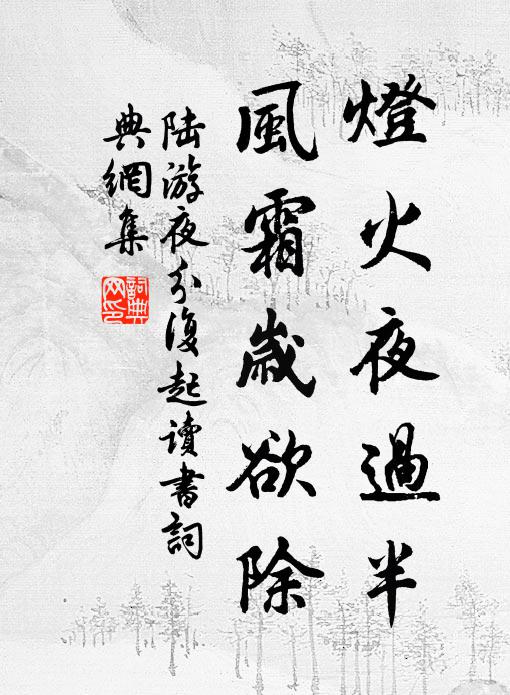 燈火夜過半
風霜歲欲除
陆游夜分復起讀書詞
典網集
詞典網印